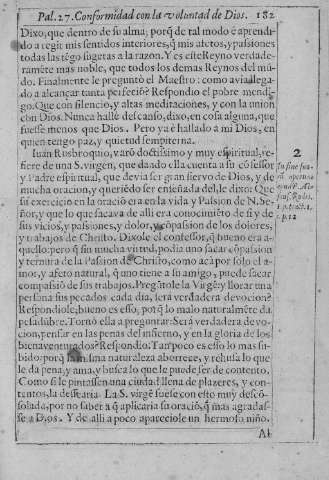 Pal. 27. Conformidad con la voluntad de Dios. 182
Dixo, que dentro de su alma; porq̃ de tal modo è aprendi-
do a regir mis sentidos interiores, q̃ mis afetos, y passiones
todas las tẽgo sugetas a la razon. Y es este Reyno verdade-
ramẽte mas noble, que todos los demas Reynos del mũ-
do. Finalmente le preguntò el Maestro: como avia llega-
do a alcançar tanta perfeciõ? Respondio el pobre mendi-
go: Que con silencio, y altas meditaciones, y con la union
con Dios. Nunca hallè descanso, dixo, en cosa alguna, que
fuesse menos que Dios. Pero ya è hallado a mi Dios, en
quien tengo paz, y quietud sempiterna.
Iuan Rusbroquio, varõ doctissimo, y muy espiritual, re-
fiere de una S. virgen, que dando ella cuenta a su cõfessor
y Padre espiritual, que devia ser gran siervo de Dios, y de
mucha oracion, y queriẽdo ser enseñada del, le dixo: Que
su exercicio en la oraciõ era en la vida y Passion de N. Se-
ñor, y que lo que sacava de alli era conocimiẽto de si y de
sus vicios, y passiones, y dolor, y cõpassion de los dolores,
y trabajos de Christo. Dixole el confessor, q̃ bueno era a-
quello: pero q̃ sin mucha virtud, podia uno sacar cõpassiõ
y ternura de la Passion de Christo, como acà por solo el a-
mor, y afeto natural, q̃ uno tiene a su amigo, puede sacar
compassiõ de sus trabajos. Pregũtole la Virgẽ: y llorar una
persona sus pecados cada dia, serà verdadera devocion?
Respondiole, bueno es esso, porq̃ lo malo naturalmẽte da
pesadũbre. Tornò ella a preguntar: Serà verdadera devo-
cion, pensar en las penas del infierno, y en la gloria de los
bienaventurados? Respondio: Tãpoco es esso lo mas su-
bido: porq̃ misma naturaleza aborrece, y rehusa lo que
le da pena, y ama, y busca lo que le puede ser de contento.
Como si le pintassen una ciudad llena de plazeres, y con-
tentos, la dessearia. La S. virgẽ fuese con esto muy desco-
solada, por no saber a q̃ aplicaria su oraciõ, q̃ mas agradas-
se a Dios. Y de alli a poco apareciole un hermoso niño.
Al
2